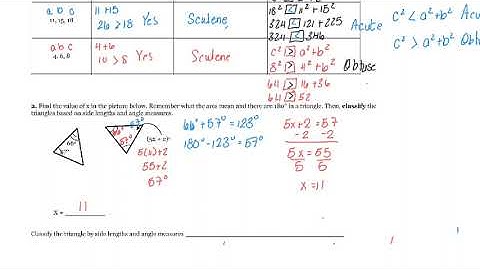 a b c
11, 15, 18
11 + 15
26 > 18 Yes
Sculene
18² < 11² + 15²
324 < 121 + 225
324 < 346
Acute
c² < a² + b² Acu
c² > a² + b² Obt
a b c
4, 6, 8
4 + 6
10 > 8 Yes
Sculene
c² > a² + b²
8² > 4² + 6² Obtuse
64 > 16 + 36
64 > 52
2. Find the value of x in the picture below. Remember what the arcs mean and there are 180° in a triangle. Then, classify the
triangles based on side lengths and angle measures.
66°
57°
66°
57°
(5x + 2)°
5(11) + 2
55 + 2
57°
66° + 57° = 123°
180° - 123° = 57°
5x + 2 = 57
- 2 - 2
5x = 55
5 5
x = 11
x = 11
Classify the triangle by side lengths and angle measures